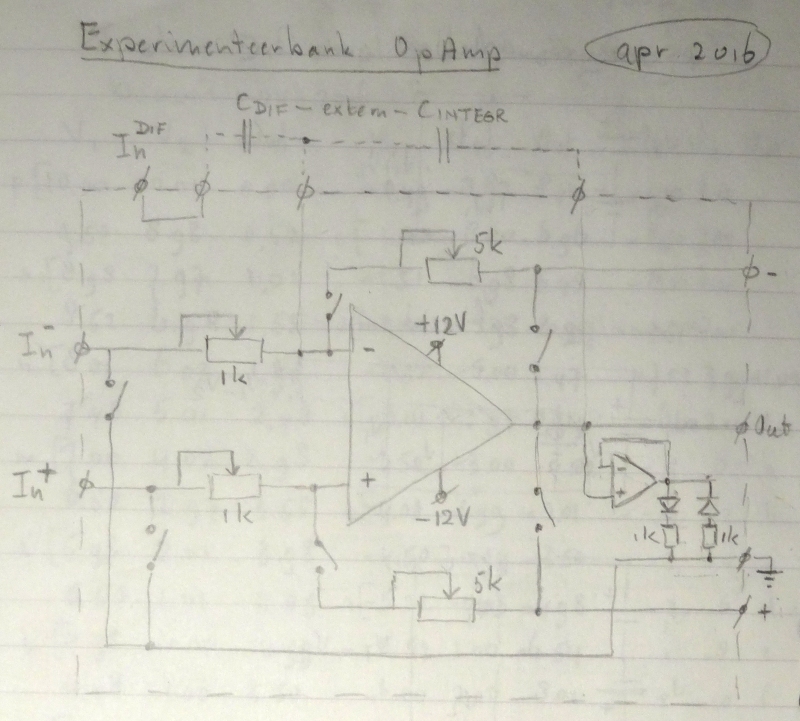 Experimenteerbank OpAmp
apr 2016
CDIF - extern - CINTEGR
In DIF
5k
-
In-
+12V
-
1k
Out
In+
+
-
+
-12V
1k
1k
1k
5k
+